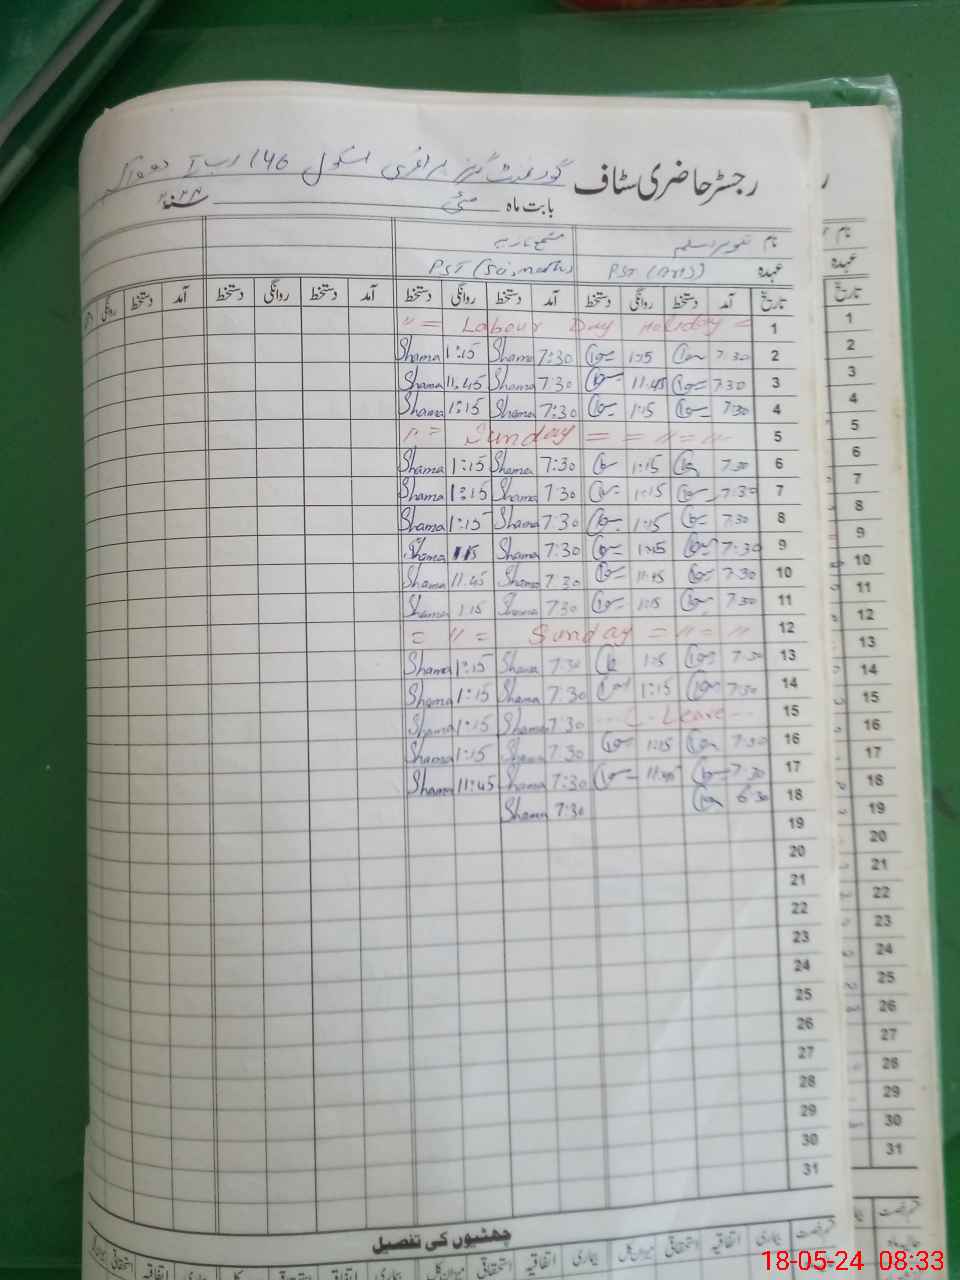 رجسٹر حاضری سٹاف گورنمنٹ گرلز پرائمری سکول 146 رب
بابت ماہ مئی سنہ ۲۰۲۴
نام
عہدہ PST (Arts) PST (Sci, maths)
تاریخ آمد دستخط روانگی دستخط آمد دستخط روانگی دستخط آمد دستخط روانگی دستخط آمد دستخط روانگی
1 " = Labour Day Holiday =
2 7:30 1:15 7:30 Shama 1:15 Shama
3 7:30 11:45 7:30 Shama 11:45 Shama
4 7:30 1:15 7:30 Shama 1:15 Shama
5 " = Sunday = = " = "
6 7:30 1:15 7:30 Shama 1:15 Shama
7 7:30 1:15 7:30 Shama 1:15 Shama
8 7:30 1:15 7:30 Shama 1:15 Shama
9 7:30 1:15 7:30 Shama 1:15 Shama
10 7:30 11:45 7:30 Shama 11:45 Shama
11 7:30 1:15 7:30 Shama 1:15 Shama
12 = " = Sunday = " = "
13 7:30 1:15 7:30 Shama 1:15 Shama
14 7:30 1:15 7:30 Shama 1:15 Shama
15 C. Leave 7:30 Shama 1:15 Shama
16 7:30 1:15 7:30 Shama 1:15 Shama
17 7:30 11:45 7:30 Shama 11:45 Shama
18 6:30 7:30 Shama
19
20
21
22
23
24
25
26
27
28
29
30
31
چھٹیوں کی تفصیل
بیماری اتفاقیہ استحقاقی میزان کل بیماری اتفاقیہ استحقاقی
نام
عہدہ
تاریخ
1
2
3
4
5
6
7
8
9
10
11
12
13
14
15
16
17
18
19
20
21
22
23
24
25
26
27
28
29
30
31
18-05-24 08:33